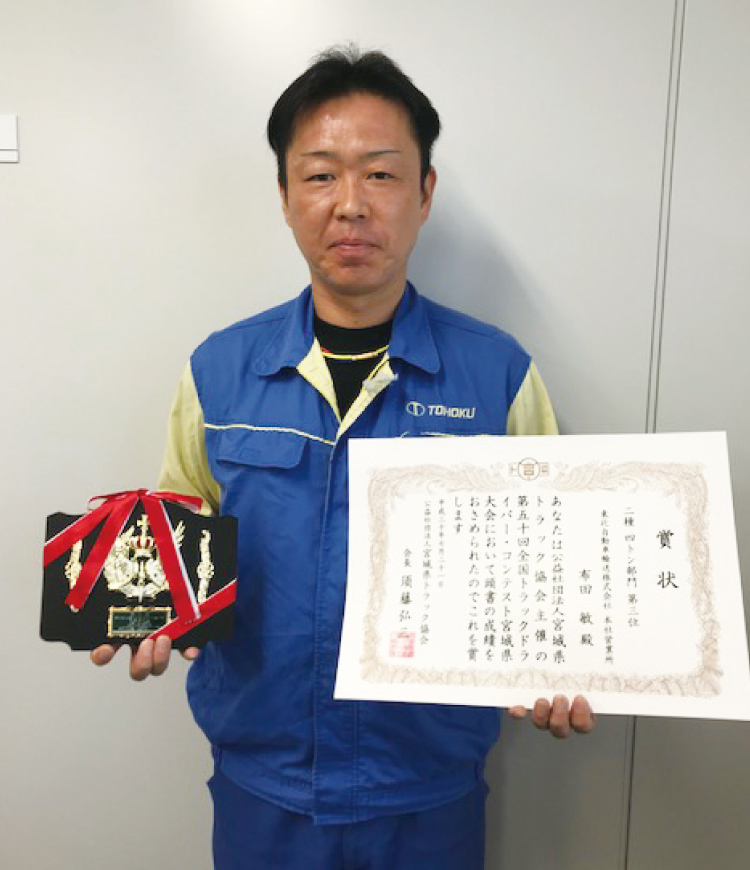 TOHOKU
賞状
二種 四トン部門 第三位
東北自動車輸送株式会社 本社営業所
布田 敏 殿
あなたは公益社団法人宮城県
トラック協会主催の
第五十回全国トラックドラ
イバー・コンテスト宮城県
大会において頭書の成績を
おさめられたのでこれを賞
します
平成三十年七月二十一日
公益社団法人宮城県トラック協会
会長 須藤弘